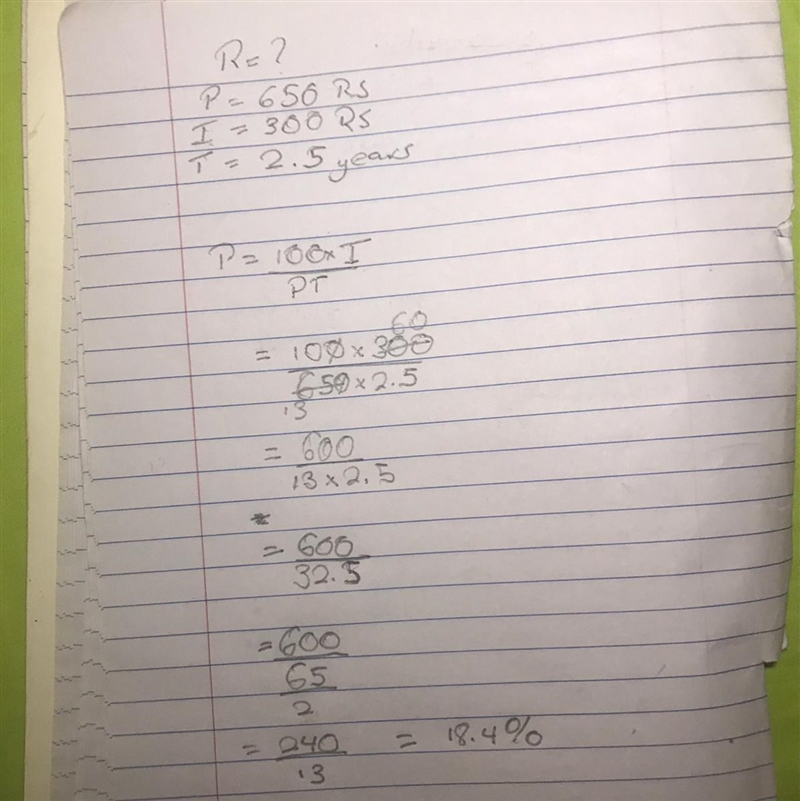 R = ?
P = 650 RS
I = 300 RS
T = 2.5 years
P = 100 × I
PT
60
= 100 × 300
650 × 2.5
13
= 600
13 × 2.5
= 600
32.5
= 600
65
2
= 240 = 18.4%
13